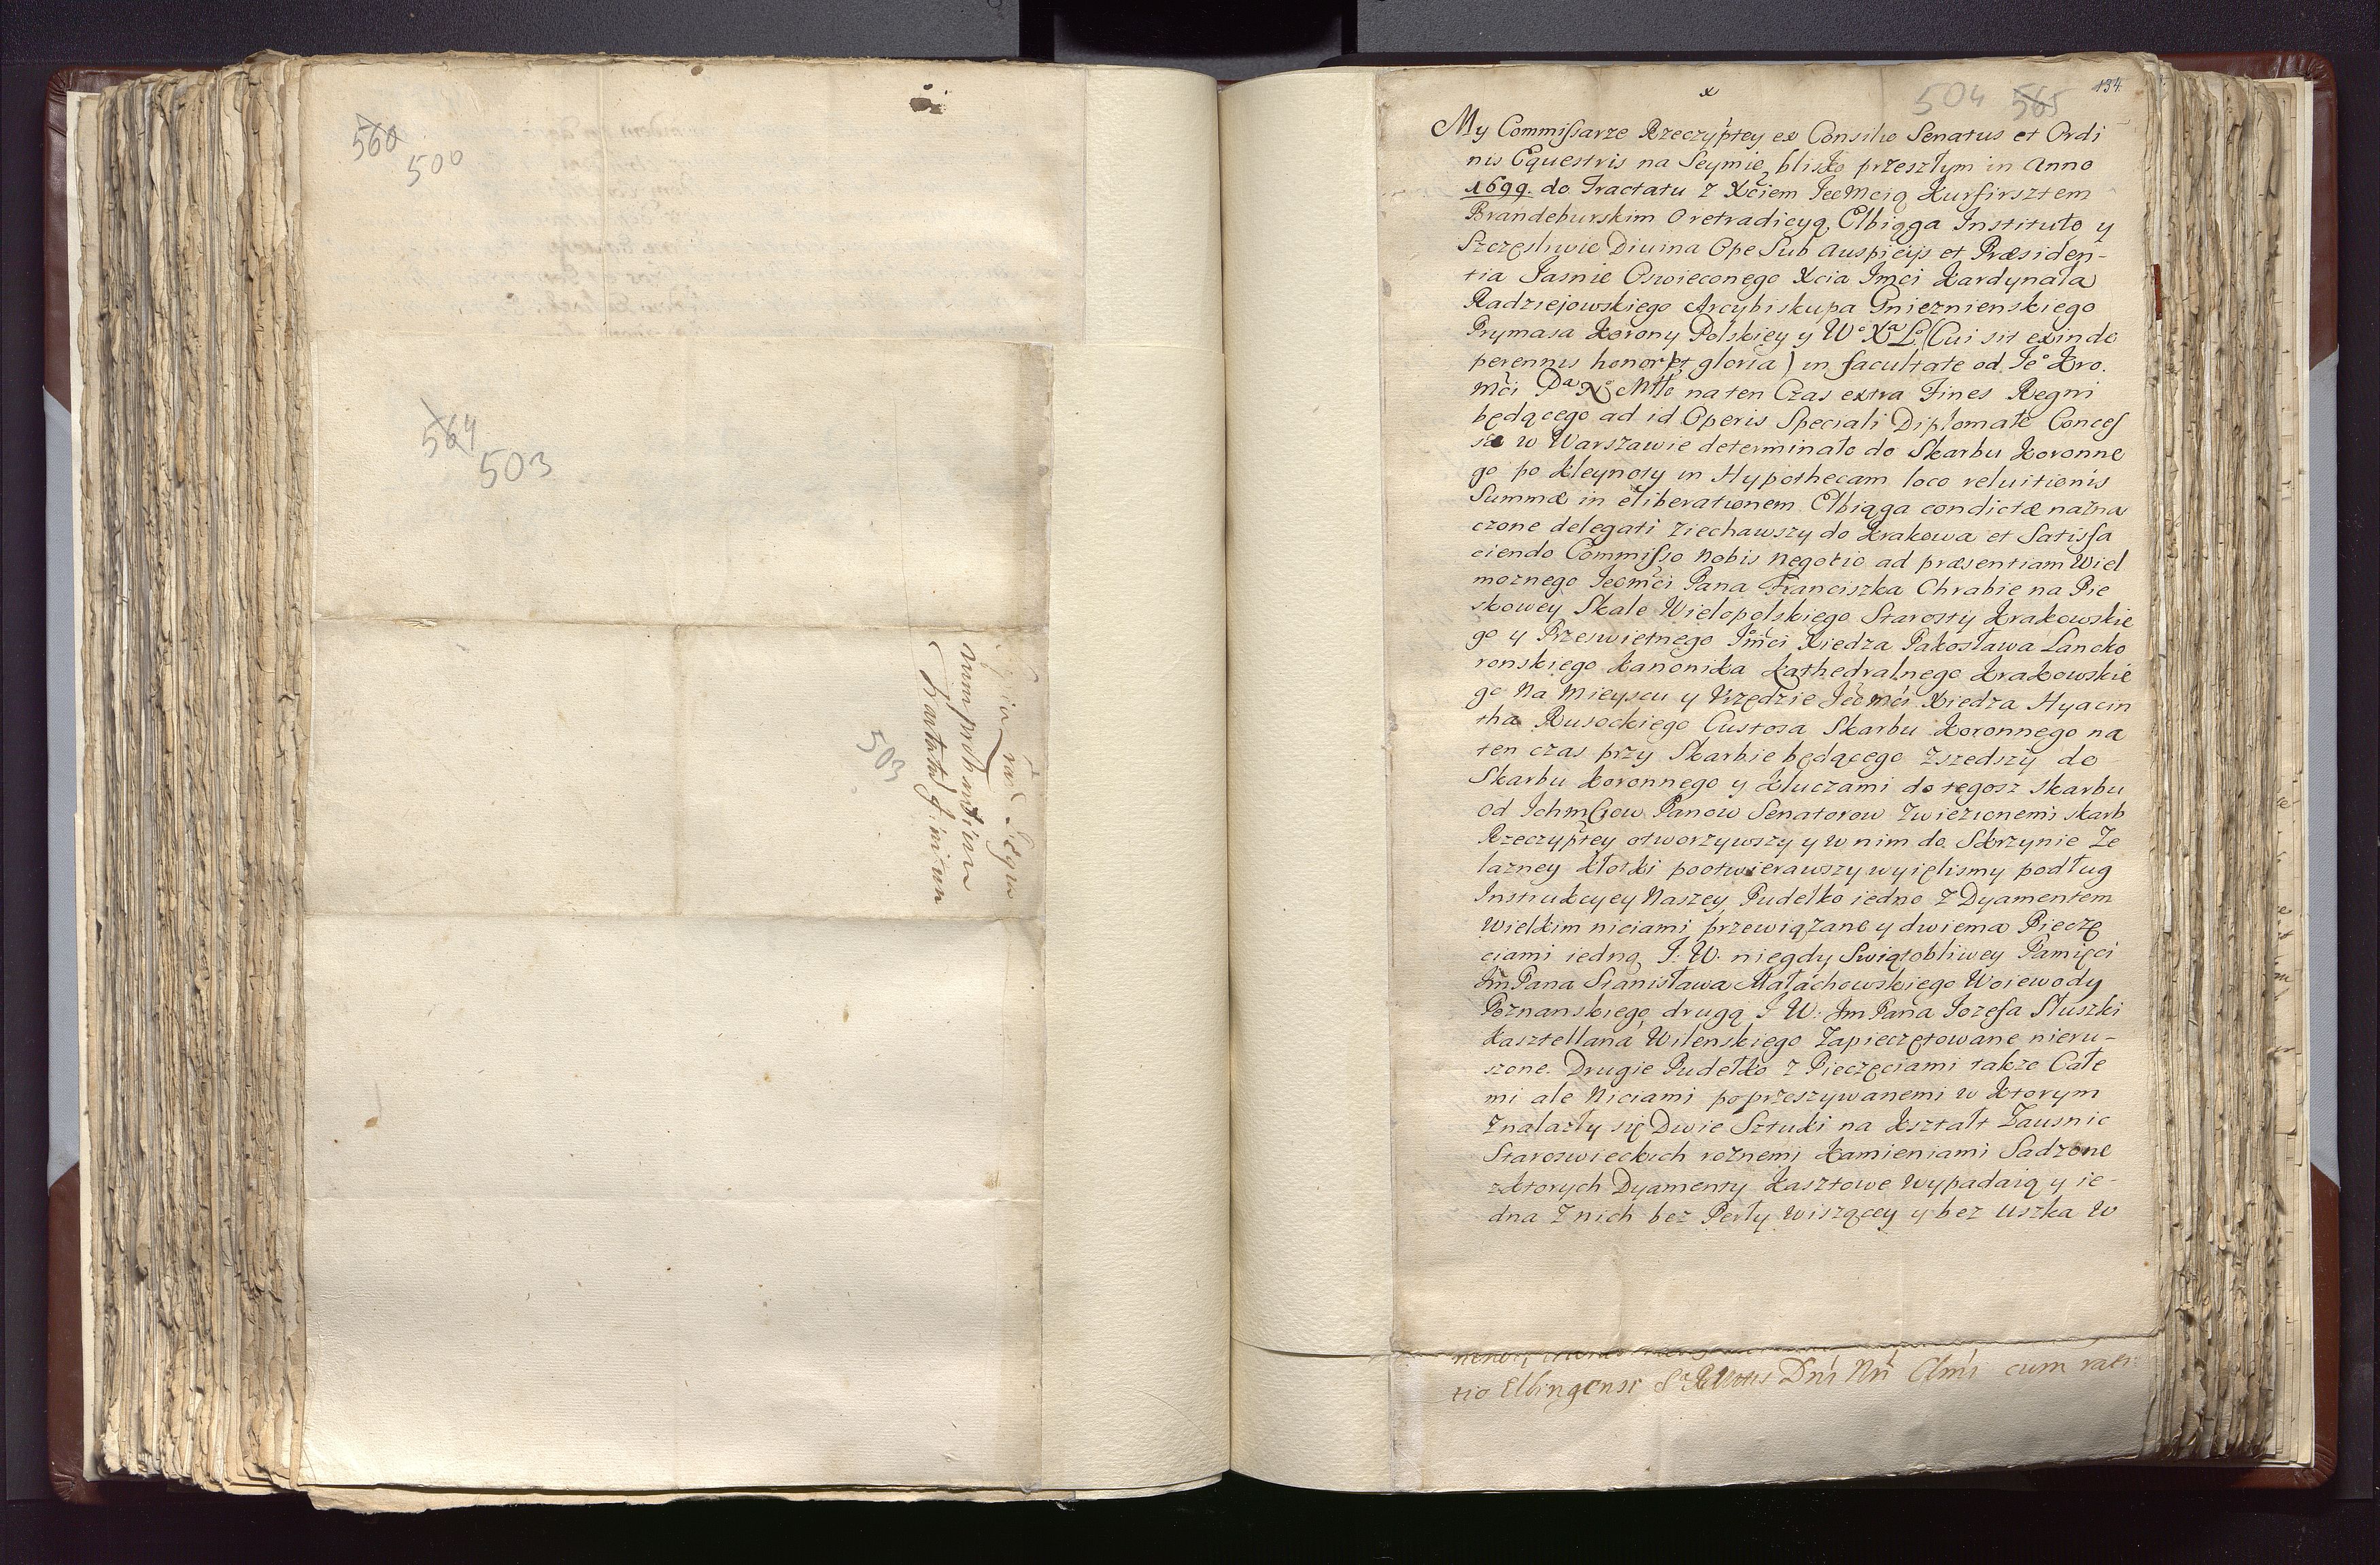 560
500
564
503
num pro
503
504 565 134.
x
My Commissarze Rzeczyptey ex Consilio Senatus et Ordi
nis Equestris na Seymie blisko przeszłym in Anno
1699. do Tractatu z Xciem JeoMcią Kurfirsztem
Brandeburskim o retradicyą Elbiąga Instituto y
Szczęsliwie Diuina Ope Sub Auspicijs et Præsiden-
tia Jasnie Oswieconego Xcia Jmci Kardynała
Radziejowskiego Arcybiskupa Gnieznienskiego
Prymasa Korony Polskiey y Wo Xa Lo (Cui sit exinde
perennis honor et gloria) in facultate od Jeo Kro.
Mci Pa No Mtto na ten Czas extra Fines Regni
będącego ad id Operis Speciali Diplomate Concef
w Warszawie determinato do Skarbu Koronne
go po Kleynoty in Hypothecam loco reluitionis
Summæ in eliberationem Elbiąga condictæ nazna
czone delegati ziechawszy do Krakowa et Satisfa
ciendo Commisso Nobis Negotio ad præsentiam Wiel
moznego Jeomci Pana Franciszka Chrabie na Pie
skowey Skale Wielopolskiego Starosty Krakowskie
go y Przeswietnego Jmci Xiedza Pakosława Lancko
ronskiego Kanonika Kathedralnego Krakowskie
go Na Mieyscu y Vrzędzie Jeomci Xiedza Hyacin
tha Rusockiego Custosa Skarbu Koronnego na
ten czas przy Skarbie będącego Zszedszy do
Skarbu Koronnego y Kluczami do tegosz Skarbu
od Ichmciow Panow Senatorow Zwiezionemi skarb
Rzeczyptey otworzywszy y w nim do Skrzynie Ze
lazney Kłotki pootwierawszy wyięlismy podług
Instrukcyey Naszey Pudełko iedno z Dyamentem
Wielkim niciami przewiązane y dwiema Pieczę
ciami iedną J: W: niegdy Swiątobliwey Pamięci
Jm Pana Stanisława Małachowskiego Woiewody
Poznanskiego drugą J W: Jm Pana Jozefa Słuszki
Kasztellana Wilenskiego Zapieczętowane nieru-
szone. Drugie Pudełko z Pieczęciami takze Całe
mi ale Niciami poprzeszywanemi w Ktorym
Znalazły się Dwie Sztuki na kształt Zausnic
Staroswieckich roznemi Kamieniami Sadzone
z ktorych Dyamenty Kasztowe Wypadaią y ie-
dna z nich bez Perły Wiszącey y bez Uszka W
tio Elbingensi Dni Nri Clmi cum